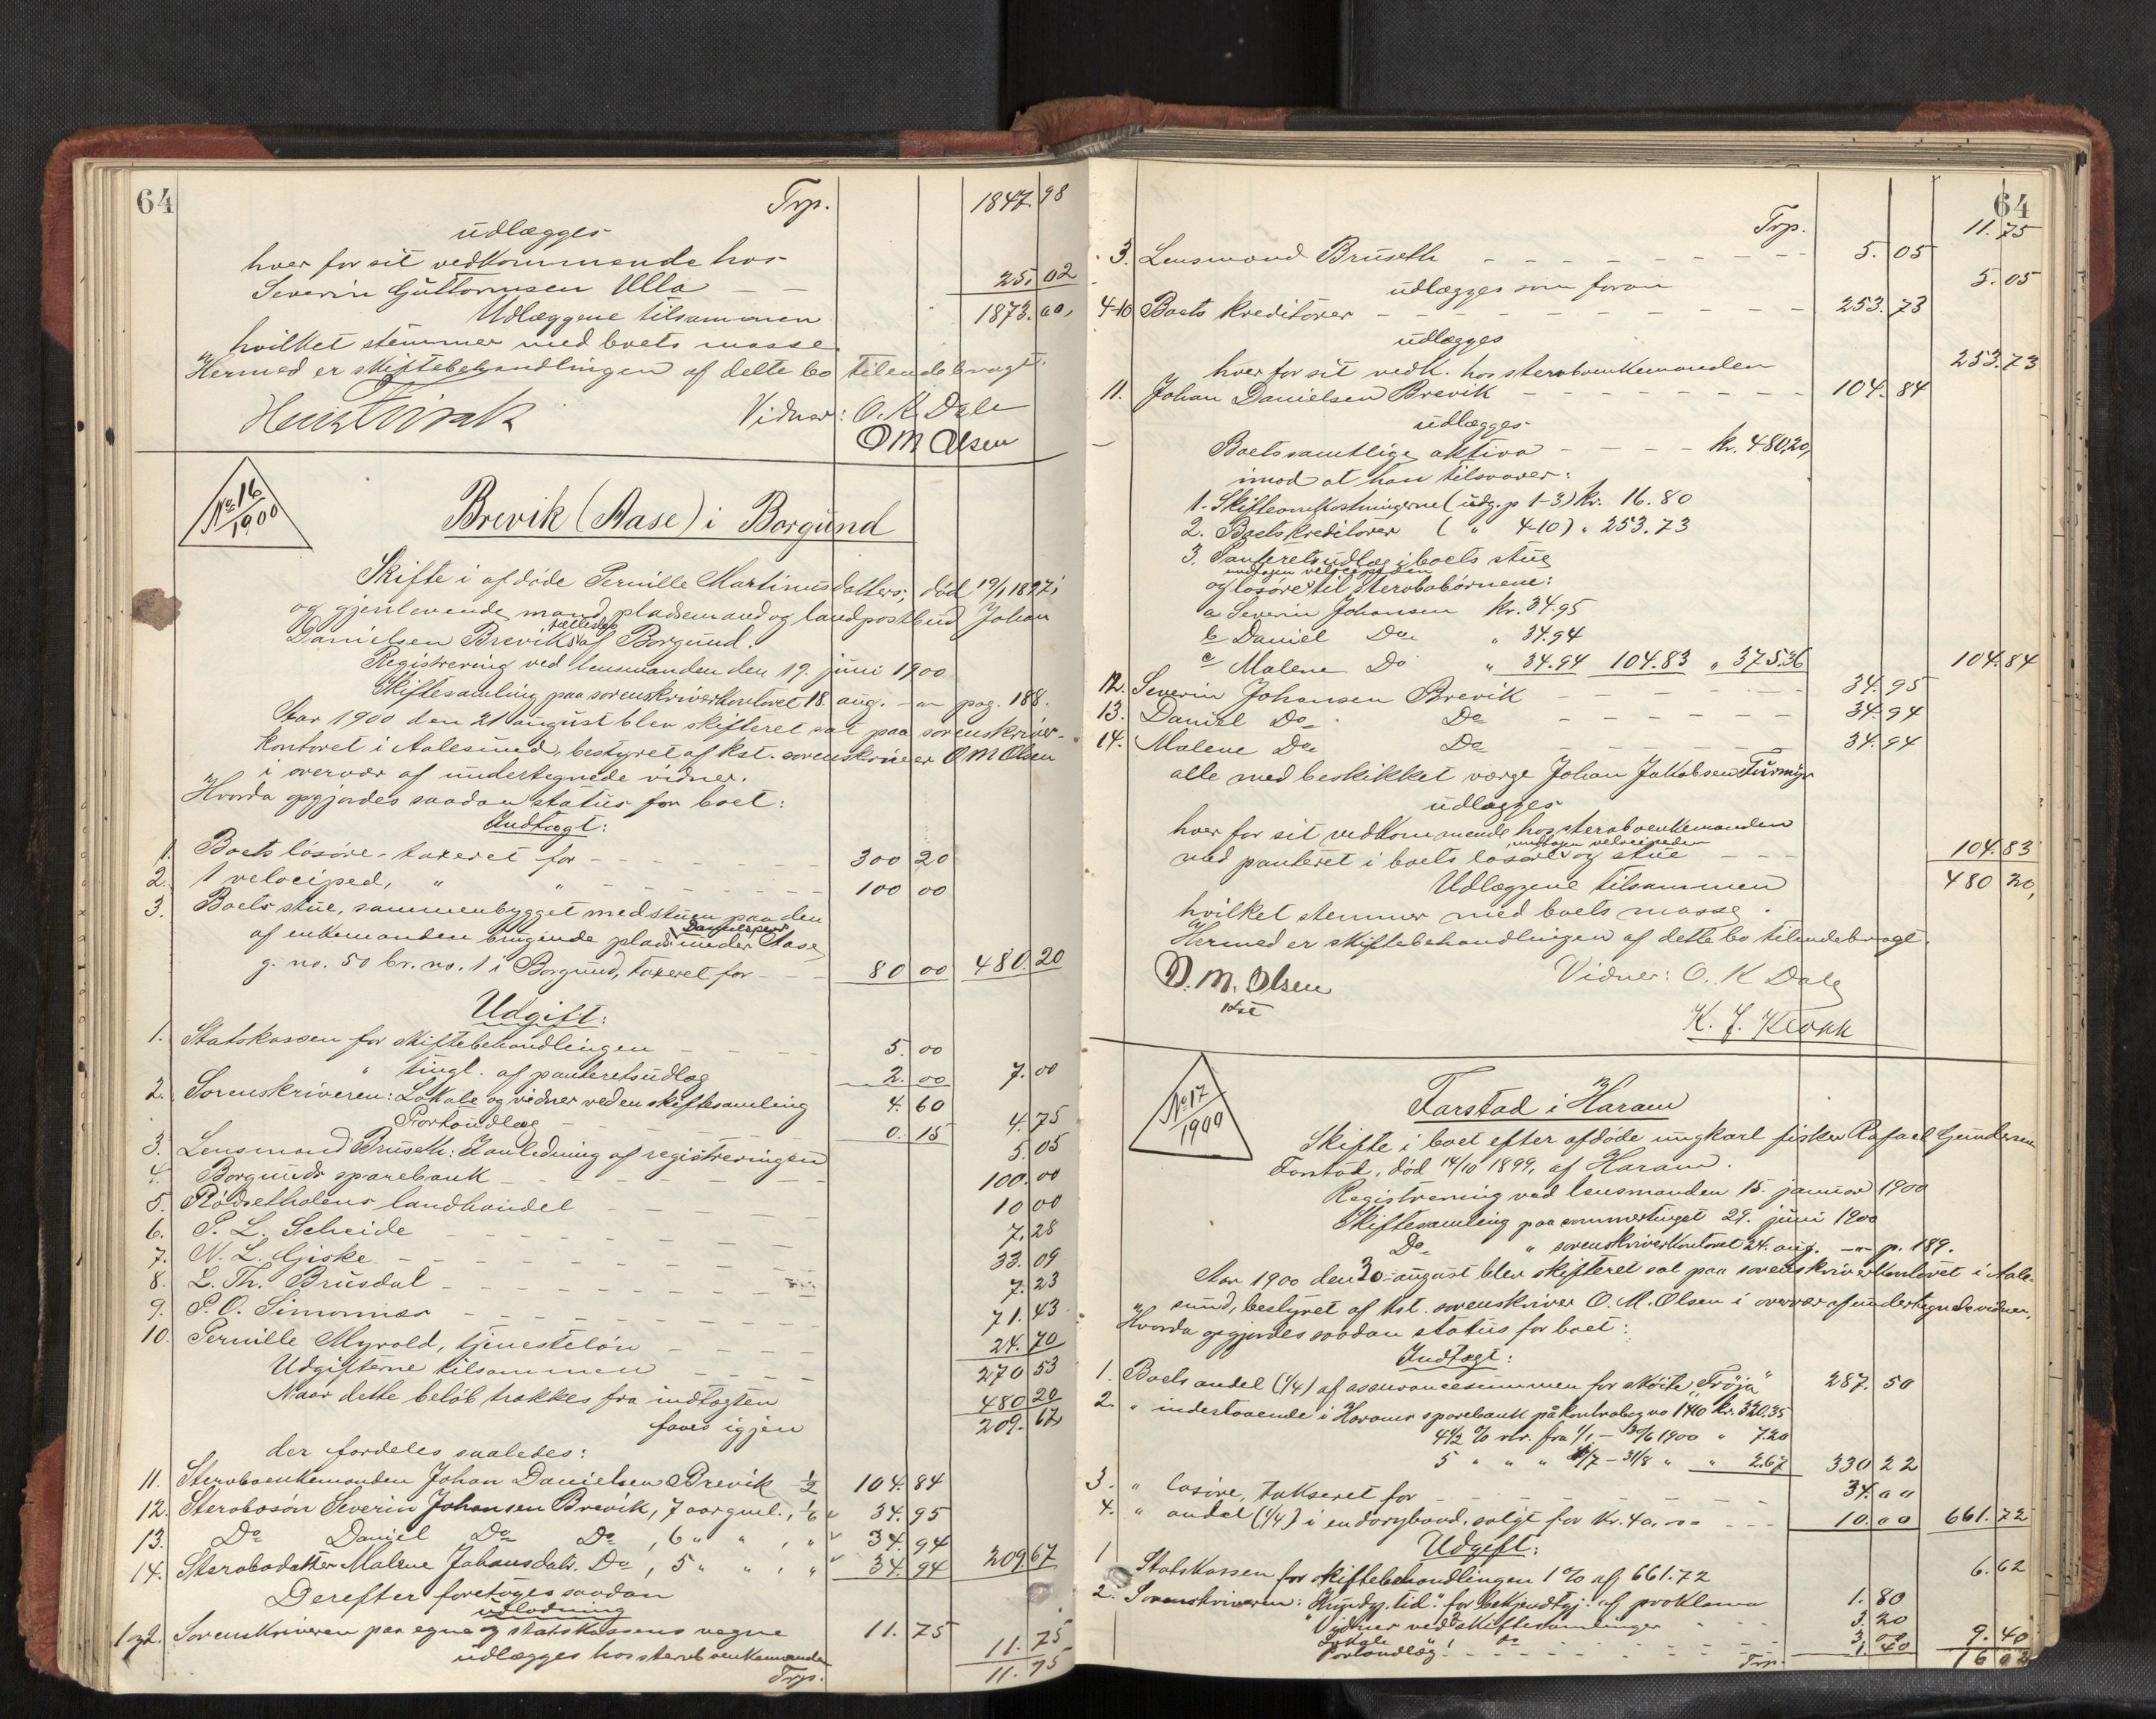 64
Trp. 1847.98
udlægges
hver for sit vedkommende hos
Severin Guttormsen Ulla — — 25.02
Udlæggene tilsammen 1873.00,
hvilket stemmer med boets masse.
Hermed er skiftebehandlingen af dette bo tilendebragt.
Vidner: O. K. Dale
O M Olsen
No 16
1900
Brevik (Aase) i Borgund
Skifte i afdøde Pernille Martinusdatters, død 19/1 1897,
og gjenlevende mand, pladsemand og landpostbud Johan
Danielsen Breviks fællesbo af Borgund.
Registrering ved lensmanden den 19. juni 1900
Skiftesamling paa sorenskriverkontoret 18 aug. — " — pag. 188.
Aar 1900 den 21 august blev skifteret sat paa sorenskriver-
kontoret i Aalesund, bestyret af kst. sorenskriver O M Olsen
i overvær af undertegnede vidner.
Hvorda opgjordes saadan status for boet:
Indtægt:
1. Boets løsøre taxeret for — — — 300 20
2. 1 velociped, " " — — — 100 00
3. Boets stue, sammenbygget med stuen paa den
af enkemanden brugende plads under Aase
g. no. 50 br. no. 1 i Borgund, taxeret for — — 80 00 480.20
Udgift:
1. Statskassen for skiftebehandlingen — — — 5.00
" tingl. af panteretsudlæg 2.00 7.00
2. Sorenskriveren: Lokale og vidner ved en skiftesamling 4.60
Portoudlæg — — — 0.15 4.75
3. Lensmand Bruseth: I anledning af registreringen 5.05
4. Borgunds sparebank — — — 100.00
5. Rødsetholens landhandel — — — 10 00
6. P. L. Scheide — — — 7.28
7. N. L. Giske — — — 33.09
8. L. Th. Brusdal — — — 7.23
9. P. O. Simonnæs — — — 71.43
10. Pernille Myrold, tjenesteløn — — — 24.70
Udgifterne tilsammen — — — 270 53
Naar dette beløb trækkes fra indtægten 480 20
faaes igjen 209.67
der fordeles saaledes:
11. Stervboenkemanden Johan Danielsen Brevik 1/2 104.84
12. Stervbosøn Severin Johansen Brevik, 7 aar gml., 1/6 34.95
13. Do Daniel Do Do, 6 " " , " 34.94
14. Stervbodatter Malene Johansdatr. Do, 5 " " , " 34.94 209.67
Derefter foretoges saadan
udlodning
1 og 2. Sorenskriveren paa egne og statskassens vegne 11.75
udlægges hos stervboenkemanden 11.75
Trp. 11.75
64
Trp. 11.75
3. Lensmand Bruseth — — — 5.05
udlægges som foran 5.05
4-10 Boets kreditorer — — — 253.73
udlægges
hver for sit vedk. hos stervboenkemanden 253.73
11. Johan Danielsen Brevik — — — 104.84
udlægges
Boets samtlige aktiva — — — kr. 480,20,
imod at han tilsvarer:
1. Skifteomkostningerne (udg. p 1-3) kr. 16.80
2. Boets kreditorer ( " 4-10) " 253.73
3. Panteretsudlæg i boets stue
undtagen velocipeden
og løsøre til stervbobørnene:
a Severin Johansen kr. 34.95
b Daniel Do " 34.94
c Malene Do " 34.94 104.83 " 375.36 104.84
12. Severin Johansen Brevik — — — 34.95
13. Daniel Do Do — — — 34.94
14. Malene Do Do — — — 34.94
alle med beskikket værge Johan Jakobsen Furmyr
udlægges
hver for sit vedkommende hos stervboenkemanden
undtagen velocipeden
med panteret i boets løsøre og stue — — 104.83
Udlæggene tilsammen 480 20,
hvilket stemmer med boets masse.
Hermed er skiftebehandlingen af dette bo tilendebragt.
O. M. Olsen
kst
Vidner: O. K Dale
K. J. Klokk
No 17
1900
Farstad i Haram
Skifte i boet efter afdøde ungkarl fisker Rafael Gundersen
Farstad, død 14/10 1899, af Haram.
Registrering ved lensmanden 15. januar 1900
Skiftesamling paa sommertinget 29. juni 1900
Do " sorenskriverkontoret 24. aug. — " — p. 189.
Aar 1900 den 30. august blev skifteret sat paa sorenskriverkontoret i Aale-
sund, bestyret af kst. sorenskriver O. M. Olsen i overvær af undertegnede vidner,
Hvorda opgjordes saadan status for boet:
Indtægt:
1. Boets andel (1/4) af assurancesummen for skøite "Frøja" 287.50
2. " indestaaende i Harams sparebank på kontrabog no 1410 kr. 320.35
4 1/2 % rtr. fra 1/1 – 30/6 1900 " 7.20
5 " " " 1/7 – 31/8 " " 2.67 330 22
3. " løsøre, takseret for — — — 34.00
4. " andel (1/4) i en dorybaad, solgt for kr. 40,00 — — 10.00 661.72
Udgift:
1 Statskassen for skiftebehandlingen 1 % af 661.72 6.62
2. Sorenskriveren: "Kundgj. tid." for bekjendtgj. af proklama 1.80
" Vidner ved 2 skiftesamlinger 3.20
Lokale " 3.00
Portoudlæg: — — — 1.40 9.40
Trp. 16 02